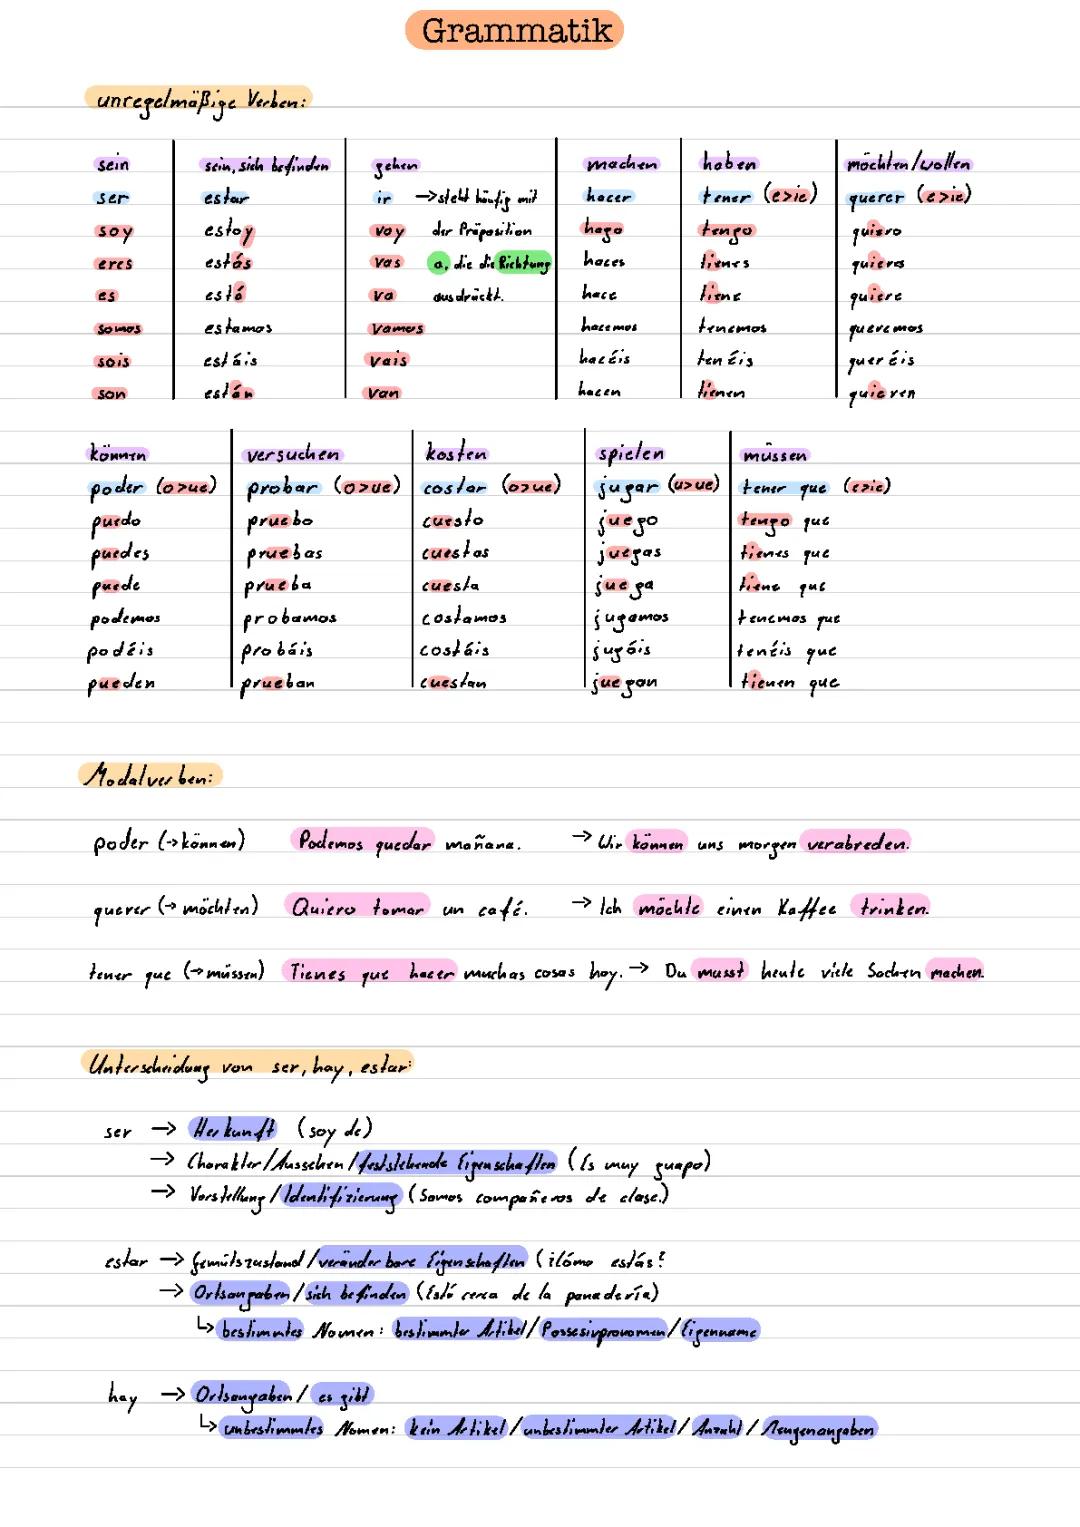 Grammatik
unregelmäßige Verben:
sein sein, sich befinden gehen machen haben möchten/wollen
ser estar ir →steht häufig mit hacer tener (e>ie) querer (e>ie)
soy estoy voy der Präposition hago tengo quiero
eres estás vas a, die die Richtung haces tienes quieres
es está va ausdrückt. hace tiene quiere
somos estamos vamos hacemos tenemos queremos
sois estáis vais hacéis tenéis queréis
son están van hacen tienen quieren
können versuchen kosten spielen müssen
poder (o>ue) probar (o>ue) costar (o>ue) jugar (u>ue) tener que (e>ie)
puedo pruebo cuesto juego tengo que
puedes pruebas cuestas juegas tienes que
puede prueba cuesta juega tiene que
podemos probamos costamos jugamos tenemos que
podéis probáis costáis jugáis tenéis que
pueden prueban cuestan juegan tienen que
Modalverben:
poder (→können) Podemos quedar mañana. → Wir können uns morgen verabreden.
querer (→ möchten) Quiero tomar un café. → Ich möchte einen Kaffee trinken.
tener que (→müssen) Tienes que hacer muchas cosas hoy. → Du musst heute viele Sachen machen.
Unterscheidung von ser, hay, estar:
ser → Herkunft (soy de)
→ Charakter/Aussehen/feststehende Eigenschaften (Es muy guapo)
→ Vorstellung/Identifizierung (Somos compañeros de clase.)
estar → Gemütszustand/veränderbare Eigenschaften (¿Cómo estás?
→ Ortsangaben/sich befinden (Está cerca de la panadería)
↳ bestimmtes Nomen: bestimmter Artikel/Possesivpronomen/Eigenname
hay → Ortsangaben/ es gibt
↳ unbestimmtes Nomen: kein Artikel/unbestimmter Artikel/Anzahl/Mengenangaben